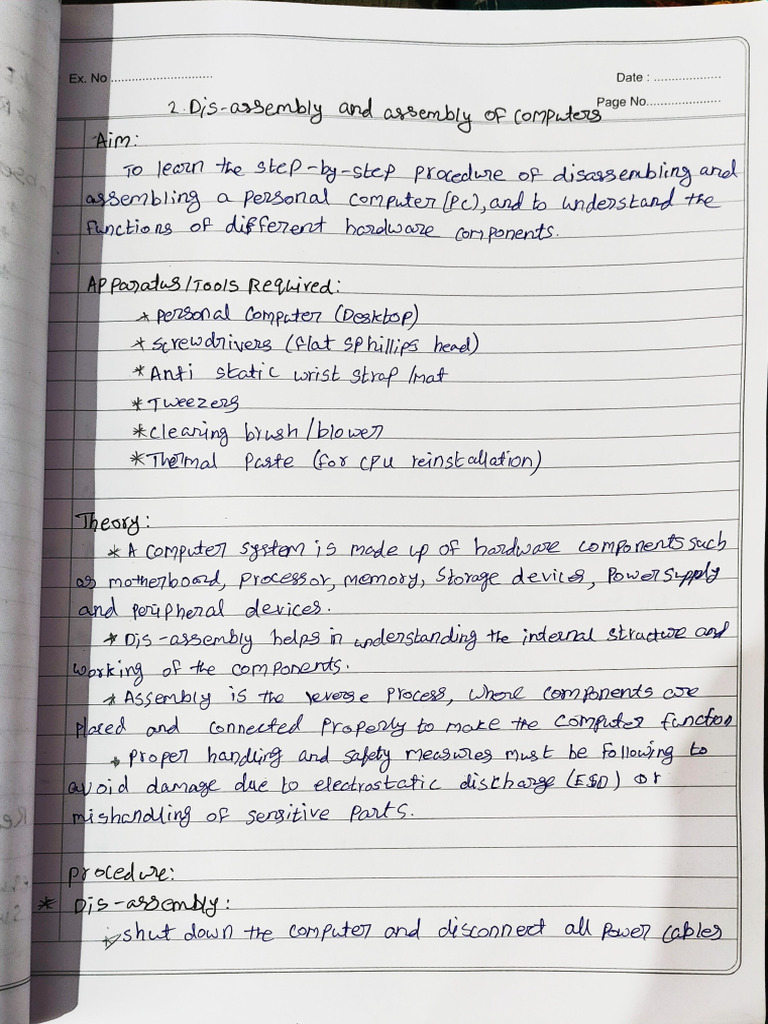 Ex. No ............................
Date : ...................
2. Dis-assembly and assembly of computers
Page No.....................
Aim:
To learn the step-by-step procedure of disassembling and
assembling a personal computer (PC), and to understand the
functions of different hardware components.
Apparatus/Tools Required:
* personal computer (Desktop)
* screwdrivers (flat & phillips head)
* Anti static wrist strap/mat
* Tweezers
* clearing brush/blower
* Thermal Paste (for CPU reinstallation)
Theory:
* A computer system is made up of hardware components such
as motherboard, processor, memory, storage devices, Power supply
and peripheral devices.
* Dis-assembly helps in understanding the internal structure and
working of the components.
* Assembly is the reverse process, where components are
placed and connected properly to make the computer function
* proper handling and safety measures must be following to
avoid damage due to electrostatic discharge (ESD) or
mishandling of sensitive parts.
procedure:
* Dis-assembly:
shut down the computer and disconnect all power cables